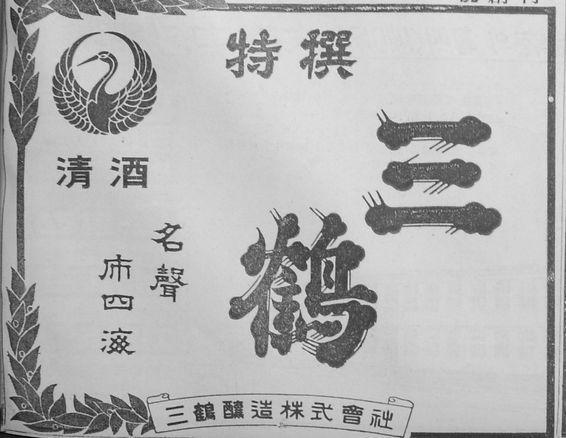 特撰
三鶴
清酒
名聲
帀四海
三鶴釀造株式會社